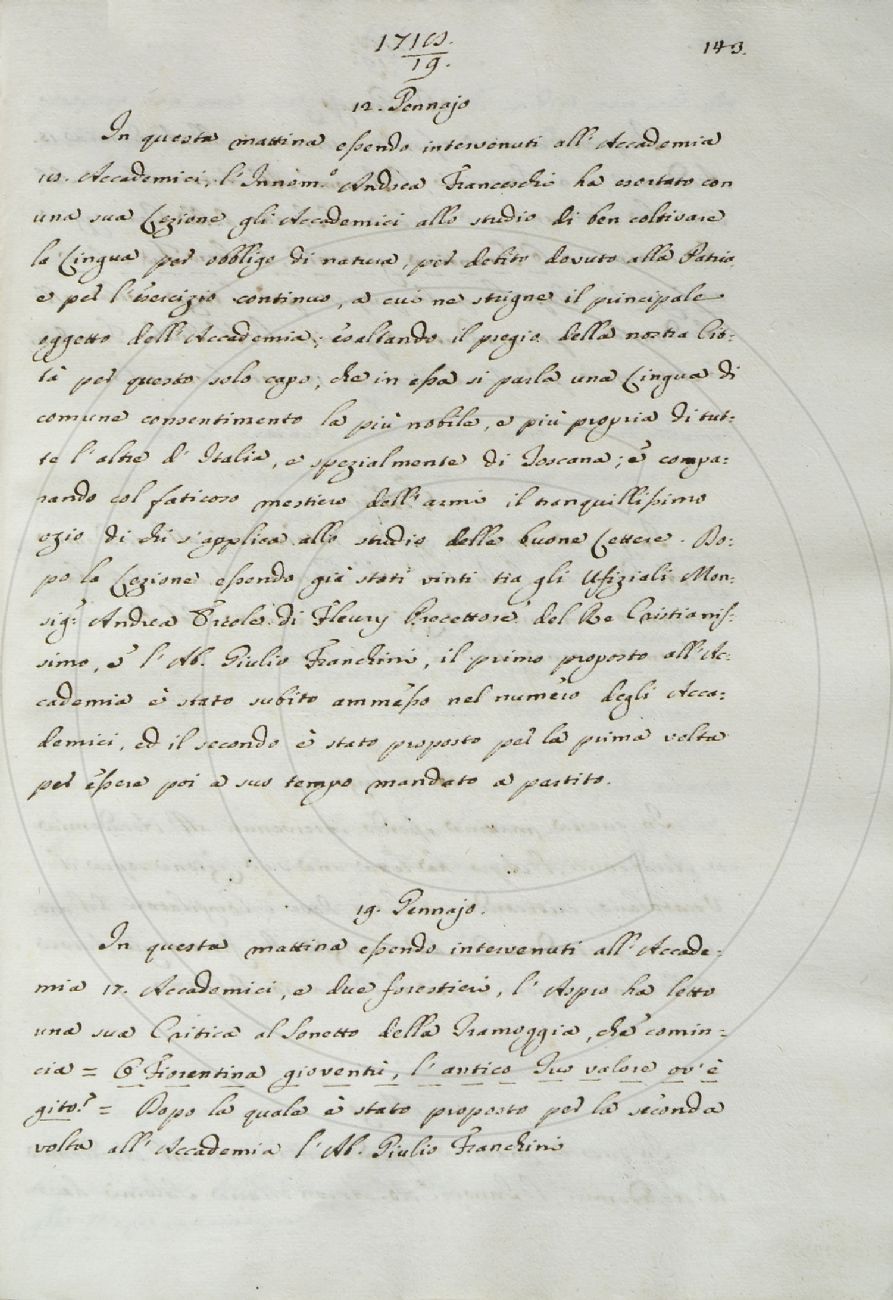 1718.
19.
143.
12. Gennajo
In questa mattina essendo intervenuti all'Accademia
18. Accademici, l'Innom.o Andrea Franceschi ha esortato con
una sua Lezione gli Accademici allo studio di ben coltivare
la Lingua per obbligo di natura, per debito dovuto alla Patria
e per l'esercizio continuo, a cui ne strigne il principale
oggetto dell'Accademia; esaltando il pregio della nostra Cit=
tà per questo solo capo, che in essa si parla una Lingua di
comune consentimento la più nobile, e più propria di tut=
te l'altre d'Italia, e spezialmente di Toscana; e compa=
rando col faticoso mestiero dell'armi il tranquillissimo
ozio di chi s'applica allo studio delle buone Lettere. Do=
po la Lezione essendo già stati vinti tra gli Ufiziali Mon=
sig.r Andrea Ercole di Fleury Precettore del Re Cristianis=
simo, e l'Ab. Giulio Franchini, il primo proposto all'Ac=
cademia è stato subito ammesso nel numero degli Acca=
demici, ed il secondo è stato proposto per la prima volta
per essere poi a suo tempo mandato a partito.
19. Gennajo.
In questa mattina essendo intervenuti all'Accade=
mia 17. Accademici, e due forestieri, l'Aspro ha letto
una sua Critica al Sonetto della Tramoggia, che comin=
cia = O Fiorentina gioventù, l'antico Tuo valore ov'è
gito? = Dopo la quale è stato proposto per la seconda
volta all'Accademia l'Ab. Giulio Franchini